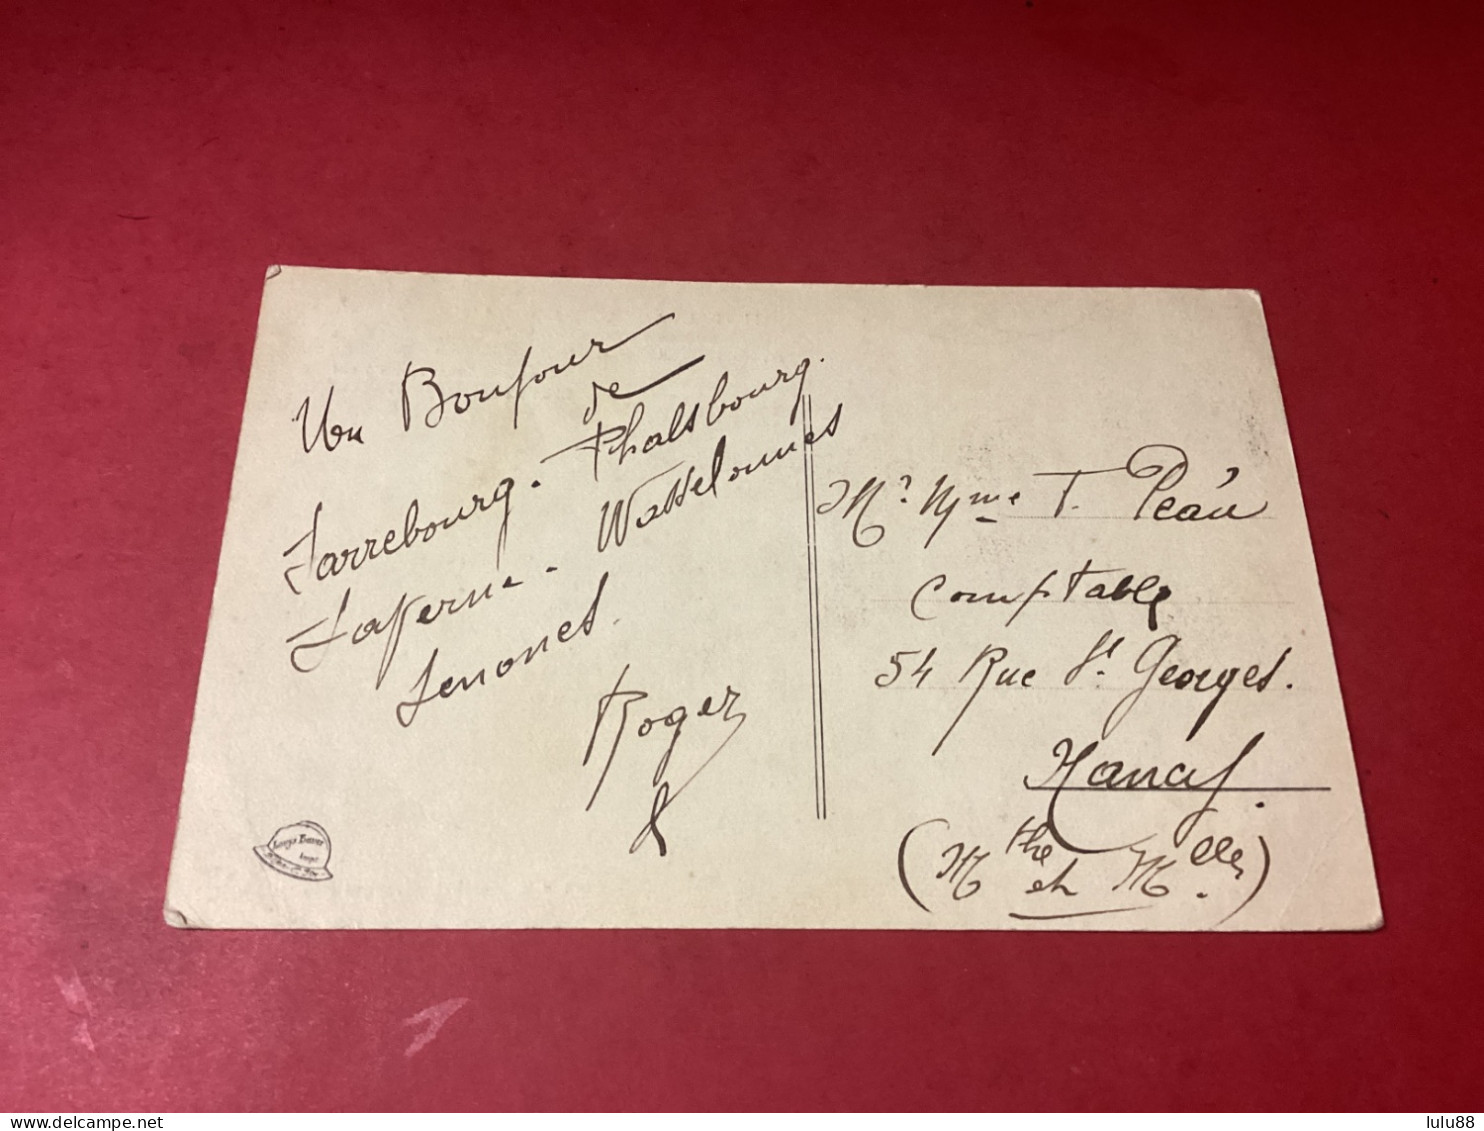 Un Bonjour
de
Sarrebourg. Phalsbourg.
Saverne. Wasselonnes
Senones.
Roger
Mr Mme T. Peau
Comptable
54 Rue St. Georges.
Nancy.
(Mthe et Melle)
lulu88